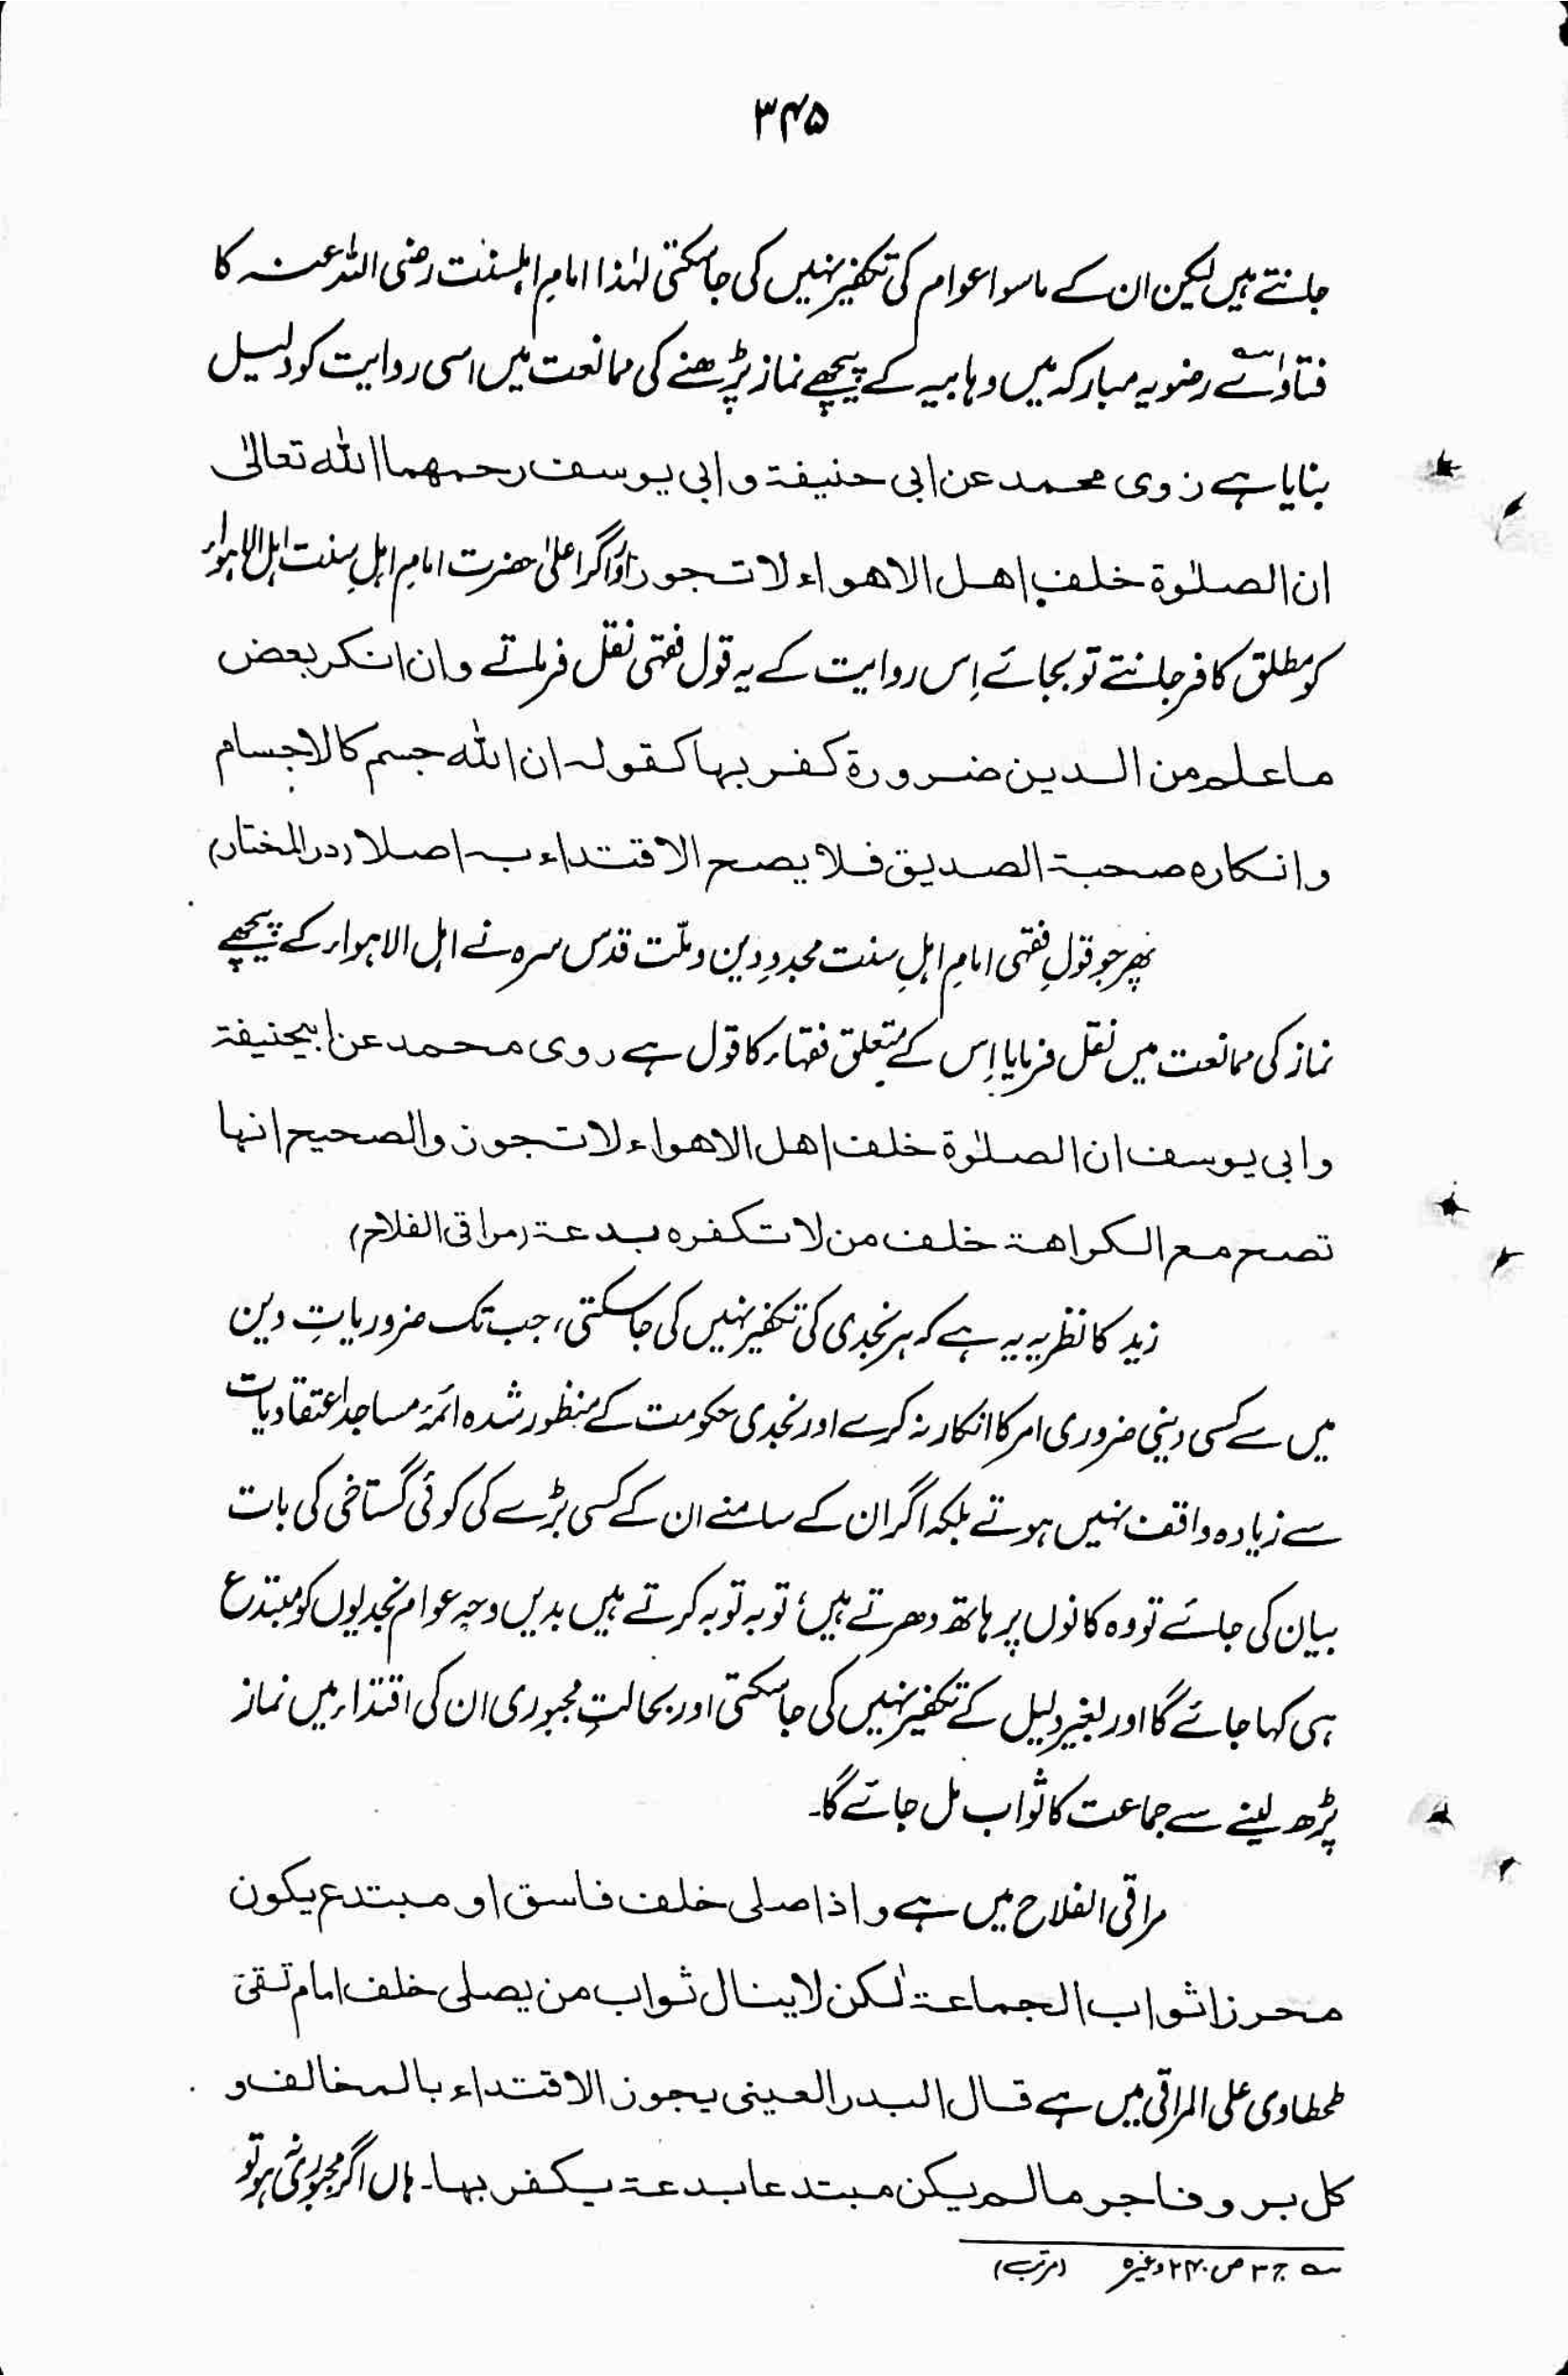 ۳۴۵
جانتے ہیں لیکن ان کے ماسوا عوام کی تکفیر نہیں کی جاسکتی لہٰذا امامِ اہلسنّت رضی اللہ عنہ کا
فتاوٰے رضویہ مبارکہ میں وہابیہ کے پیچھے نماز پڑھنے کی ممانعت میں اسی روایت کو دلیل
بنایا ہے روی محمد عن ابی حنیفۃ و ابی یوسف رحمہما اللہ تعالیٰ
ان الصلٰوۃ خلف اھل الاھواء لا تجوز اور اگر اعلیٰ حضرت امامِ اہلِ سنت اہل الاہواء
کو مطلق کافر جانتے تو بجائے اِس روایت کے یہ قول فقہی نقل فرماتے وان انکر بعض
ما علم من الدین ضرورۃ کفر بہا کقولہ ان اللہ جسم کالاجسام
وانکارہ صحبۃ الصدیق فلا یصح الاقتداء بہ اصلا (در المختار)
پھر جو قولِ فقہی امامِ اہلِ سنت مجددِ دین و ملّت قدس سرہ نے اہل الاہواء کے پیچھے
نماز کی ممانعت میں نقل فرمایا اِس کے متعلق فقہاء کا قول ہے روی محمد عن ابیحنیفۃ
وابی یوسف ان الصلٰوۃ خلف اھل الاھواء لا تجوز والصحیح انہا
تصح مع الکراھۃ خلف من لا تکفرہ بدعۃ (مراقی الفلاح)
زید کا نظریہ یہ ہے کہ ہر نجدی کی تکفیر نہیں کی جاسکتی، جب تک ضروریاتِ دین
میں سے کسی دینی ضروری امر کا انکار نہ کرے اور نجدی حکومت کے منظور شدہ ائمۂ مساجد اعتقادیات
سے زیادہ واقف نہیں ہوتے بلکہ اگر ان کے سامنے ان کے کسی بڑے کی کوئی گستاخی کی بات
بیان کی جائے تو وہ کانوں پر ہاتھ دھرتے ہیں، توبہ توبہ کرتے ہیں بدیں وجہ عوام نجدیوں کو مبتدع
ہی کہا جائے گا اور بغیر دلیل کے تکفیر نہیں کی جاسکتی اور بحالتِ مجبوری ان کی اقتداء میں نماز
پڑھ لینے سے جماعت کا ثواب مل جائے گا۔
مراقی الفلاح میں ہے واذا صلی خلف فاسق او مبتدع یکون
محرزا ثواب الجماعۃ لٰکن لا ینال ثواب من یصلی خلف امام تقی
طحطاوی علی المراقی میں ہے قال البدر العینی یجوز الاقتداء بالمخالف و
کل بر و فاجر مالم یکن مبتدعا بدعۃ یکفر بہا۔ ہاں اگر مجبوری نہ ہو تو
؎ ج ۳ ص ۲۴۰ وغیرہ (مرتب)